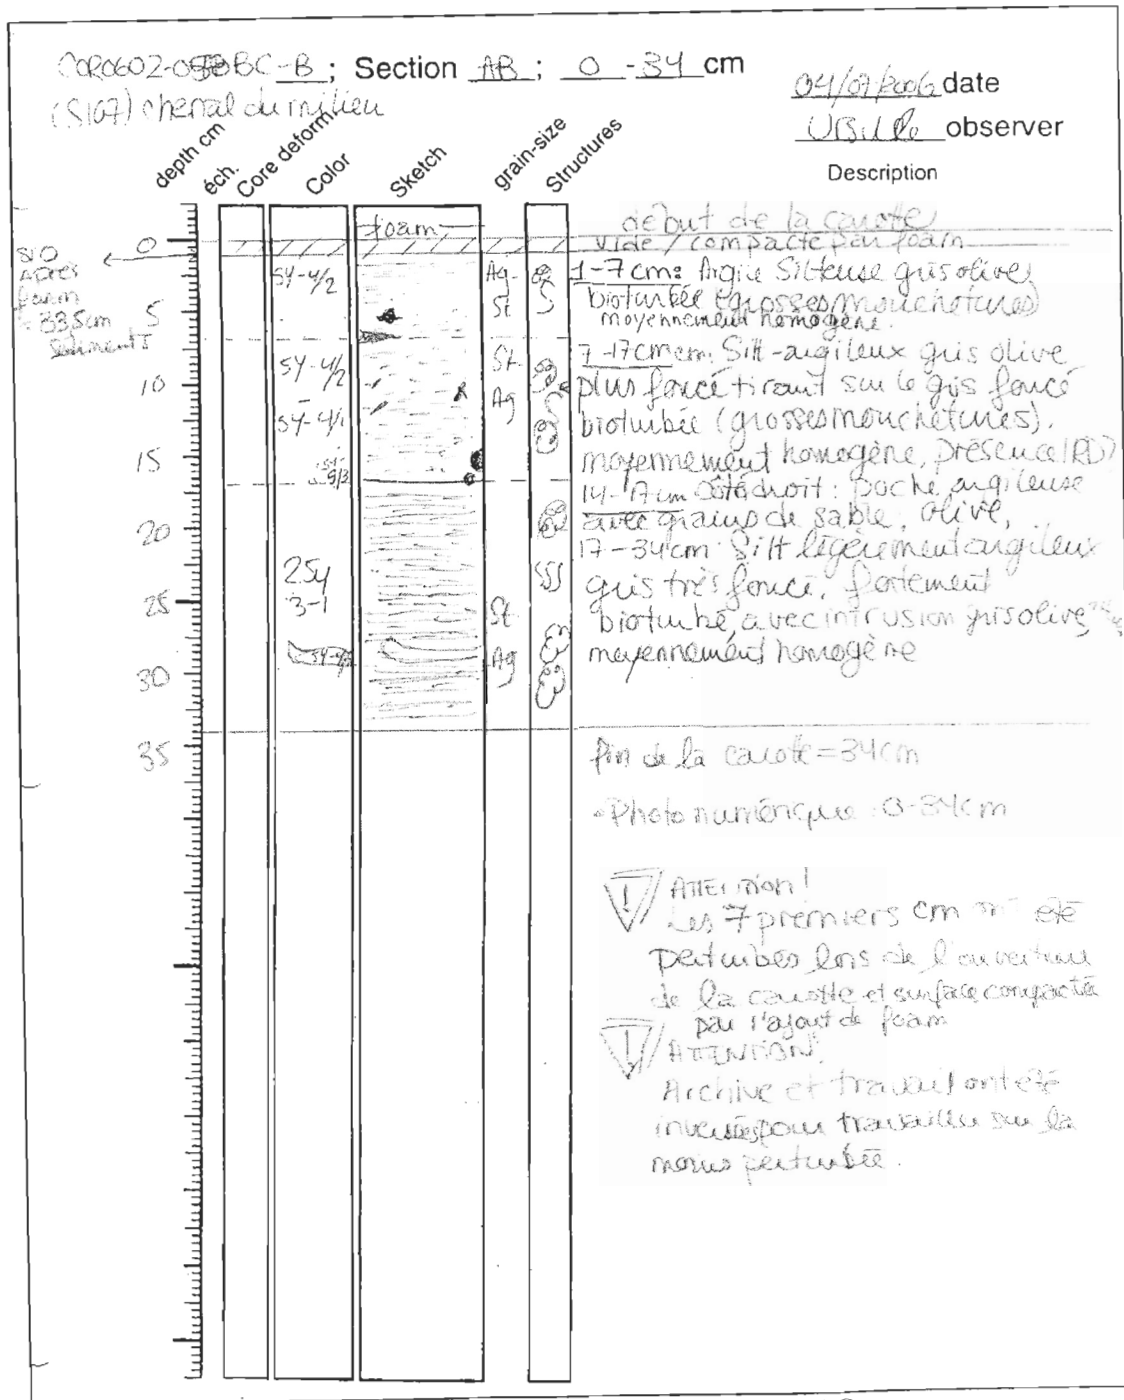 COR0602-05 BC -B ; Section AB ; 0 - 34 cm
(S107) chenal du milieu
04/07/2006 date
observer
depth cm
éch.
Core deform.
Color
Sketch
grain-size
Structures
Description
foam
début de la carotte
vide / compacté par foam
0
5
10
15
20
25
30
35
Après
foam
= 33,5cm
sédiments
5Y-4/2
5Y-4/2
-
5Y-4/1
2.5y
3-1
Ag
St.
St.
Ag
St
Ag
1-7 cm: Argile Silteuse gris olive,
bioturbée (grosses mouchetures)
moyennement homogène.
7-17cm cm: Silt-argileux gris olive
plus foncé tirant sur le gris foncé
bioturbée (grosses mouchetures).
moyennement homogène, présence IRD
14-17 cm côté droit: poche argileuse
avec grains de sable, olive,
17-34 cm: Silt légèrement argileux
gris très foncé, fortement
bioturbé, avec intrusion gris olive,
moyennement homogène
fin de la carotte = 34 cm
• Photo numérique : 0-34 cm
! ATTENTION!
Les 7 premiers cm ont été
perturbés lors de l'ouverture
de la carotte et surface compactée
par l'ajout de foam
! ATTENTION!
Archive et travail ont été
inversés pour travailler sur la
moins perturbée.